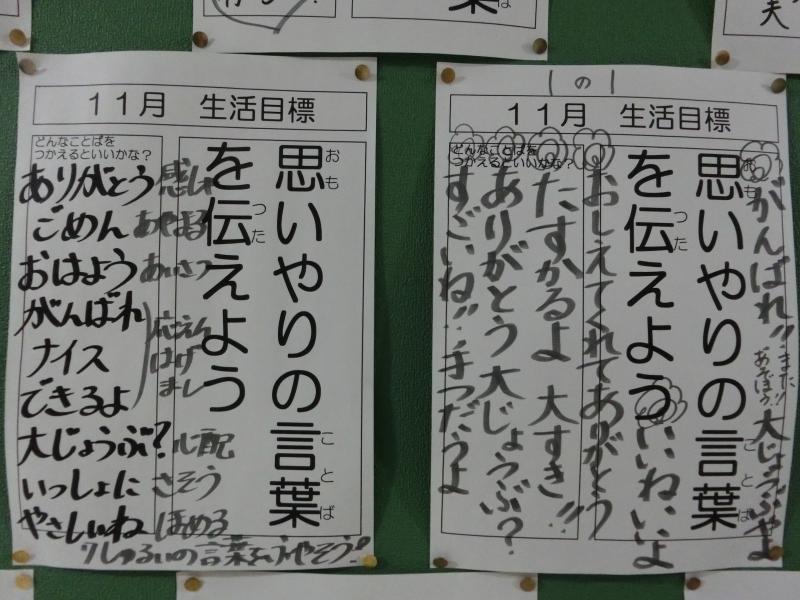 11月 生活目標
思いやりの言葉
おも
ことば
を伝えよう
つた
どんなことばを
つかえるといいかな？
ありがとう 感しゃ
ごめん あやまる
おはよう あいさつ
がんばれ 応えん
ナイス はげ
できるよ まし
大じょうぶ? 心配
いっしょに さそう
やさしいね ほめる
7しゅるいの言葉をふやそう!
1の1
11月 生活目標
がんばれ!! 大じょうぶだよ
また!!
あそぼう
思いやりの言葉
おも
ことば
を伝えよう
つた
いいね、いいよ
どんなことばを
つかえるといいかな？
おしえてくれてありがとう
たすかるよ 大すき!!
ありがとう 大じょうぶ?
すごいね!! 手つだうよ
夫